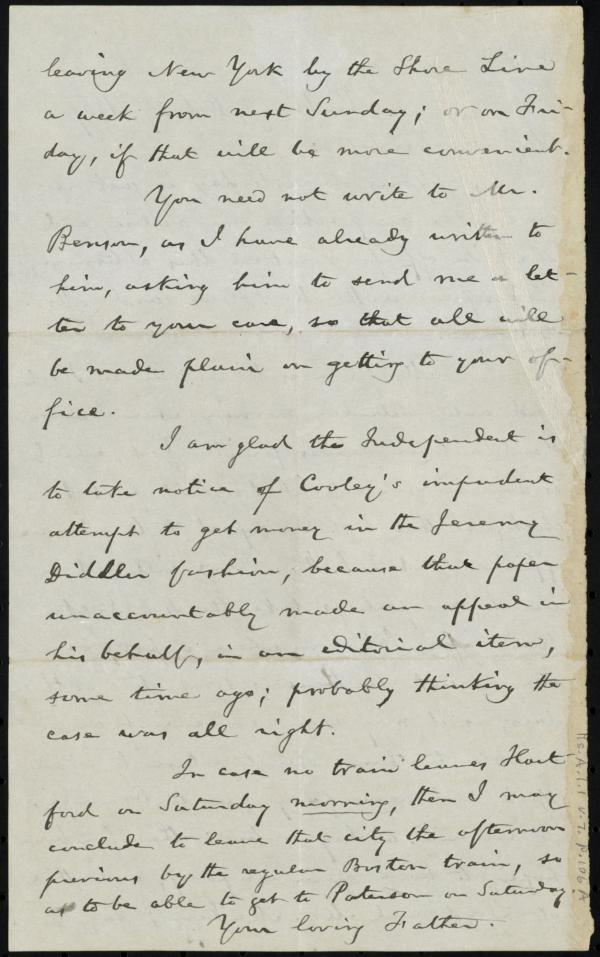 leaving New York by the Shore Line
a week from next Sunday; or on Fri-
day, if that will be more convenient.
You need not write to Mr.
Benson, as I have already written to
him, asking him to send me a let-
ter to your care, so that all will
be made plain on getting to your of-
fice.
I am glad the Independent is
to take notice of Cooley's impudent
attempt to get money in the Jeremy
Diddler fashion, because that paper
unaccountably made an appeal in
his behalf, in an editorial item,
some time ago; probably thinking the
case was all right.
In case no train leaves Hart
ford on Saturday morning, then I may
conclude to leave that city the afternoon
previous by the regular Boston train, so
as to be able to get to Paterson on Saturday.
Your loving Father.
Ms.A.1.1 v.7, p.106A